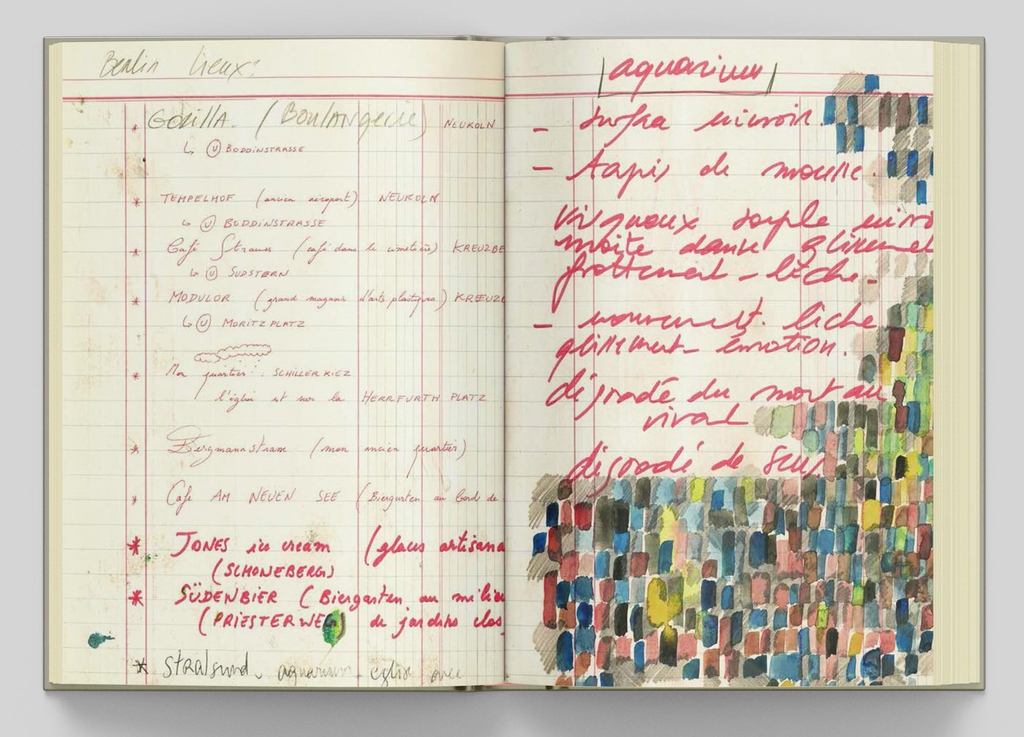 Berlin lieux:
* GORILLA. (BOULANGERIE) NEUKOLN
↳ (U) BODDINSTRASSE
* TEMPELHOF (ancien aéroport) NEUKOLN
↳ (U) BODDINSTRASSE
* Café Strauss (café dans le cimetière) KREUZBE
↳ (U) SUDSTERN
* MODULOR (grand magasin d'arts plastiques) KREUZ
↳ (U) MORITZPLATZ
* Mon quartier: SCHILLERKIEZ
l'église est sur la HERRFURTH PLATZ
* Bergmannstrasse (mon ancien quartier)
* Café AM NEUEN SEE (Biergarten au bord de
* JONES ice cream (glaces artisana
(SCHONEBERG)
* SÜDENBIER (Biergarten au milieu
(PRIESTERWEG) de jardins
* Stralsund. aquarium. église avec
aquarium
- surface miroir.
- Tapis de mousse.
visqueux souple
moite danse
frottement - lèche -
- mouvement. lèche
glissement émotion.
dégradé du mort au
vivant
dégradé de